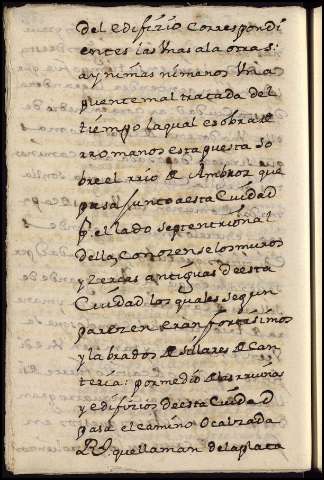 del edifizio correspondi
entes las unas a la otras
ay ni mas ni manos una
puente mal tratada del
tiempo la qual es obra de
rromanos esta puesta so
bre el rrio de Ambroz que
pasa junto a esta Ciudad
P. el lado septentrional
della Conozense los muros
y Zercas antiguas de esta
Ciudad los quales segun
parezen eran fortisimos
y labrados de sillares de Can
teria: por medio de las rruinas
y edifizios de esta Ciudad
pasa el camino o calzada
Rl. que llaman de la plata